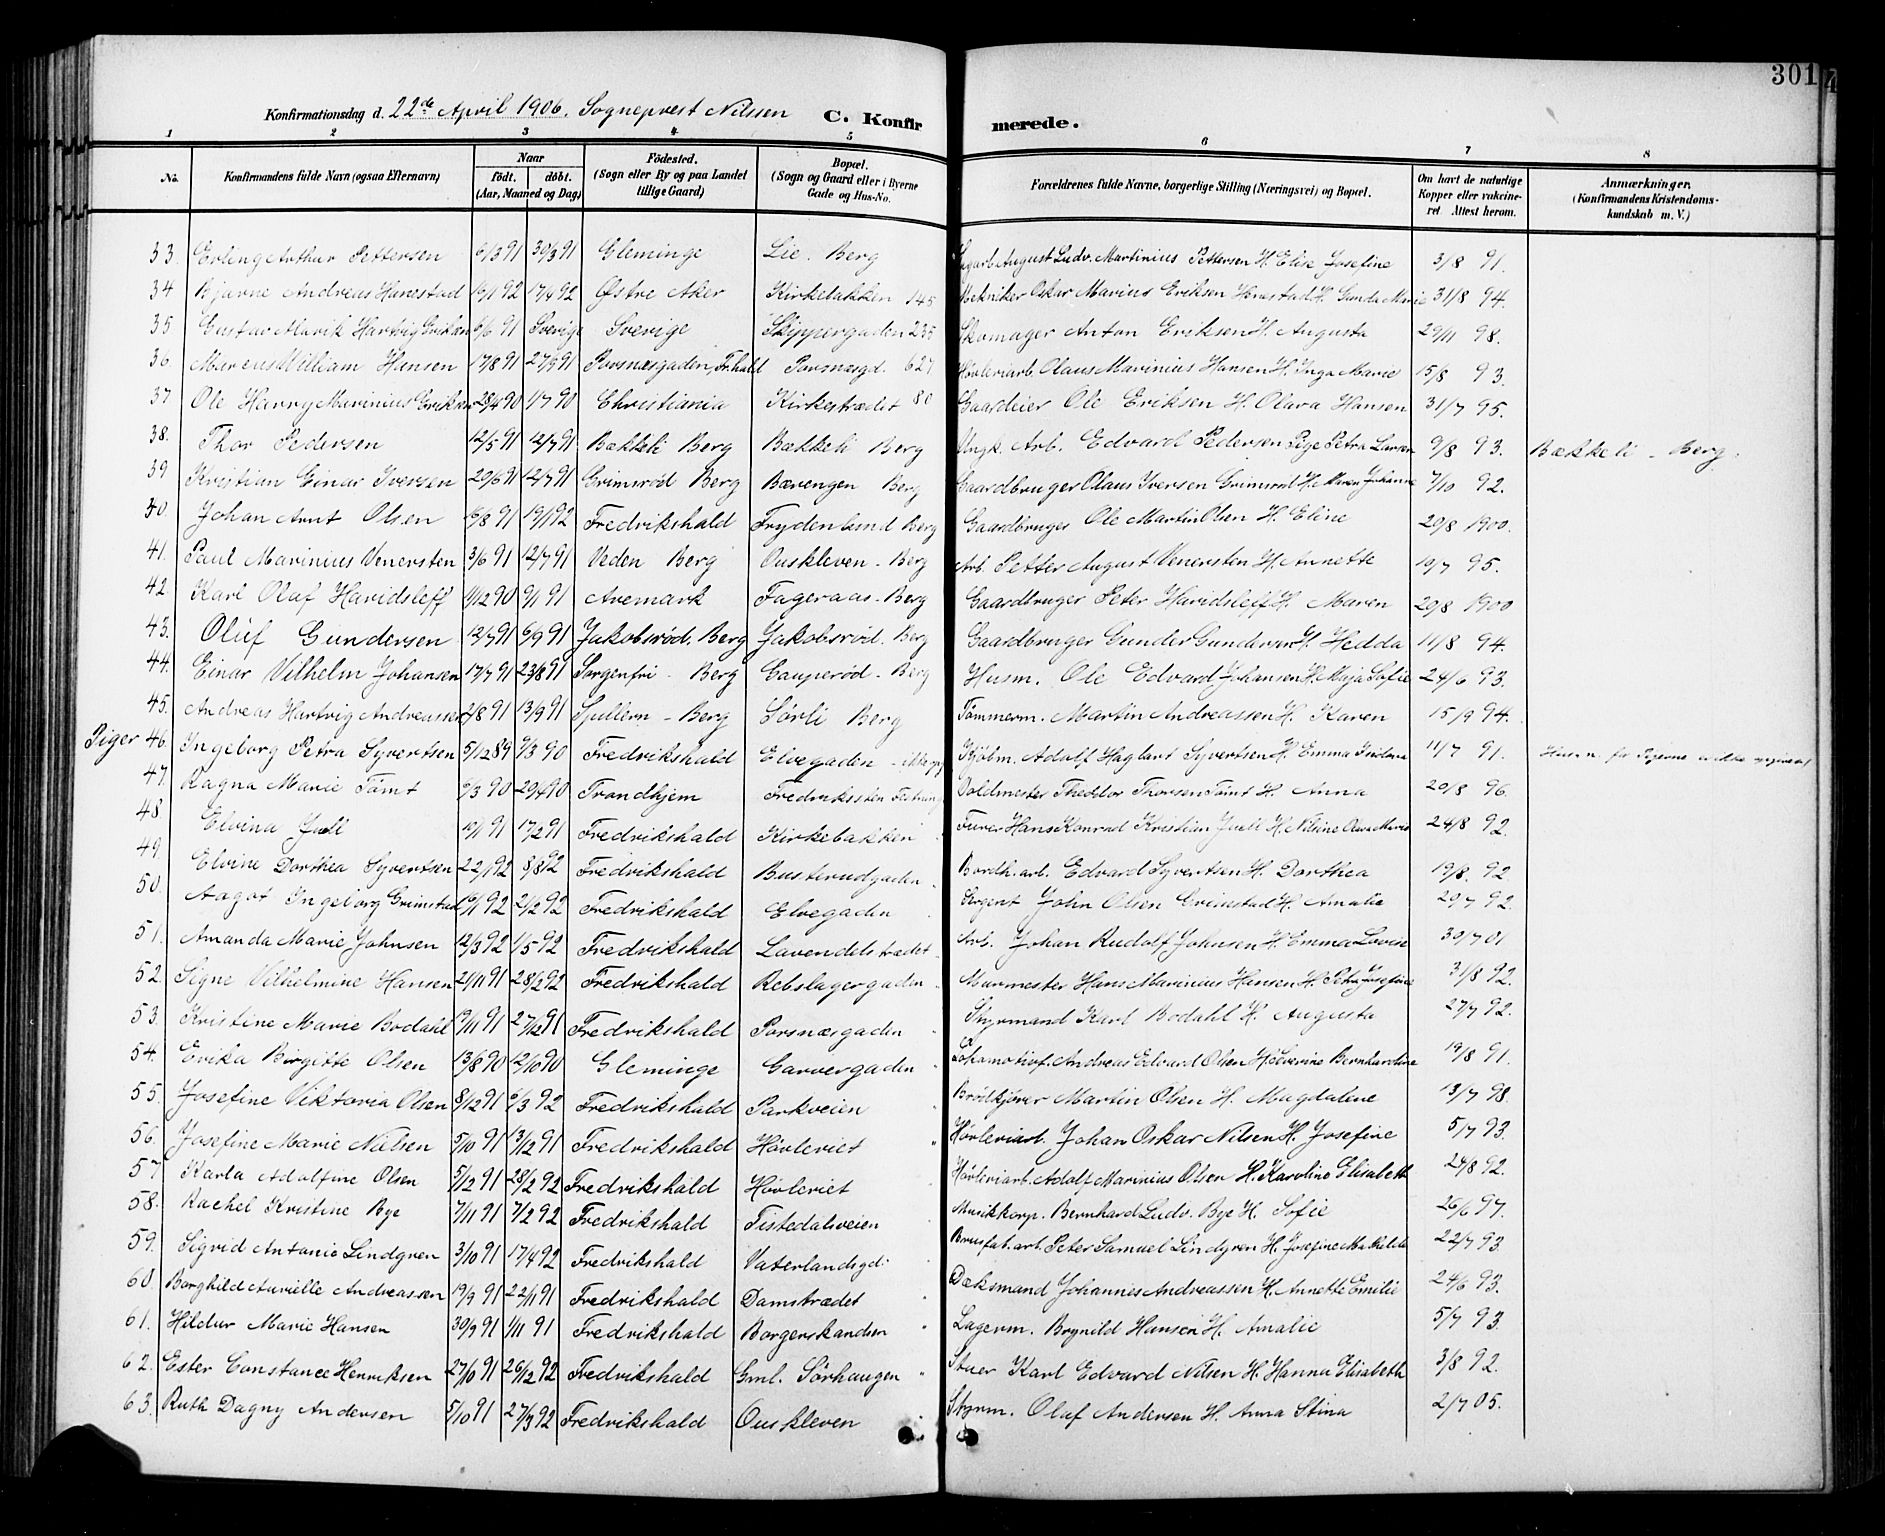 301
Konfirmationsdag d. 22de April 1906. Sogneprest Nilssen C. Konfirmerede.
1 2 3 4 5 6 7 8
No. Konfirmandens fulde Navn (ogsaa Efternavn) Naar født. døbt. (Aar, Maaned og Dag) Födested. (Sogn eller By og paa Landet tillige Gaard) Bopæl. (Sogn og Gaard eller i Byerne Gade og Hus-No. Forældrenes fulde Navne, borgerlige Stilling (Næringsvei) og Bopæl. Om havt de naturlige Kopper eller vakcineret Attest herom. Anmærkninger. (Konfirmandens Kristendomskundskab m. V.)
33. Erling Arthur Pettersen 6/3 91 30/3 91 Gleminge Lie. Berg August Ludv. Martinius Pettersen H. Elise Josefine 3/8 91.
34 Bjarne Andreas Hanestad 19/1 92 17/4 92 Østre Aker Kirkebakken 145 Mekniker Oskar Marius Eriksen H. Gunda Marie 31/8 94.
35 Gustav Alarik Hartvig Eriksen 6/6 91 Sverige Sverige Skippergaden 235 Skomager Anton Eriksen H. Augusta 29/11 98.
36. Marens William Hansen 17/8 91 27/9 91 Porsnæsgaden, Fr.hald Porsnæsgd. 627 Høvleriarb. Olaus Marinius Hansen H. Inga Marie 15/8 93.
37. Ole Harry Marinius Eriksen 28/4 90 1/7 90 Christiania Kirkestrædet 80 Gaardeier Ole Eriksen H. Olava Hansen 31/7 95.
38. Thor Pedersen 12/5 91 12/7 91 Bækkeli Berg Bækkeli Berg Ungk. Arb. Edvard Pedersen Pige Petra Larsen 9/8 93. Bækkeli - Berg.
39 Kristian Einar Iversen 29/6 91 12/7 91 Grimsrød Berg Bævengen Berg Gaardbruger Olaus Iversen Grimsrød H. Maren Johanne 7/10 92.
40. Johan Arnt Olsen 6/8 91 19/1 92 Fredrikshald Frydenlund Berg Gaardbruger Ole Martin Olsen H. Eline 29/8 1900.
41. Paul Marinius Venersten 3/6 91 12/7 91 Veden Berg Ouskleven - Berg Arb. Petter August Venersten H. Annette 19/7 95.
42. Karl Olaf Haridsleff 1/12 90 9/1 91 Aremark Fageraas - Berg Gaardbruger Peter Haridsleff H. Maren 29/8 1900
43. Oluf Gundersen 12/7 91 6/9 91 Jakobsrød. Berg Jakobsrød. Berg Gaardbruger Gunder Gundersen H. Hedda 11/8 94.
44. Einar Vilhelm Johansen 17/7 91 23/8 91 Sorgenfri - Berg Gauperød - Berg Husm. Ole Edvard Johansen H. Maja Sofie 24/6 93.
45. Andreas Hartvig Andreassen 2/8 91 13/9 91 Spullern - Berg Sörli Berg Tömmerm. Martin Andreassen H. Karen 15/9 94.
Piger 46. Ingeborg Petra Syvertsen 5/12 89 9/3 90 Fredrikshald Elvegaden Kjølm. Adolf Haglart Syvertsen H. Emma 11/7 91.
47. Ragna Marie Tömt 6/3 90 29/4 90 Trondhjem Fredriksten Fæstning Voldmester Theodor Thorsen Tömt H. Anna 20/8 96.
48 Elvina Juell 19/1 91 17/2 91 Fredrikshald Kirkebakken Furer Hans Konrad Kristian Juell H. Nilsine Olava Marie 24/8 92.
49. Elvine Dorthea Syvertsen 22/1 92 8/8 92 Fredrikshald Busterudgaden Bordh.arb. Edvard Syvertsen H. Dorthea 19/8. 92.
50. Aagot Ingeborg Grimstad 16/1 92 21/2 92 Fredrikshald Elvegaden Sergent John Olsen Grimestad H. Amalie 29/7 92.
51. Amanda Marie Johnsen 12/3 92 1/5 92 Fredrikshald Lavendelstrædet Arb. Johan Rudolf Johnsen H. Emma Lovise 30/7 01
52. Signe Vilhelmine Hansen 21/11 91 28/2 92 Fredrikshald Rebslagergaden Murmester Hans Marinius Hansen H. Petra Josefine 31/8 92.
53. Kristine Marie Bodahl 19/11 91 27/12 91 Fredrikshald Porsnæsgaden Styrmand Karl Bodahl H. Augusta 27/7 92.
54. Erika Birgitte Olsen 13/8 90 12/10 90 Gleminge Garvergaden Lokomotivf. Andreas Edvard Olsen H. Severine Bernhardine 19/8 91.
55. Josefine Viktoria Olsen 8/12 91 6/3 92 Fredrikshald Parkveien Brödkjörer Martin Olsen H. Magdalene 13/7 98.
56. Josefine Marie Nielsen 5/10 91 13/12 91 Fredrikshald Høvleriet Høvleriarb. Johan Oskar Nilsen H. Josefine 5/7 93.
57 Karla Adolfine Olsen 5/12 91 28/2 92 Fredrikshald Høvleriet Høvleriarb. Adolf Marinius Olsen H. Karoline Elisabeth 24/8 92.
58. Rachel Kristine Bye 7/11 91 7/2 92 Fredrikshald Tistedalsveien Musikkorp. Bernhard Ludv. Bye H. Sofie 26/6 97.
59. Sigrid Antonie Lindgren 3/10 91 17/4 92 Fredrikshald Vaterlandsgd. Brusfab.arb. Peter Samuel Lindgren H. Josefine Mathilde 22/7 93.
60. Borghild Aurielle Andreassen 19/9 91 22/11 91 Fredrikshald Damstrædet Dæksmand Johannes Andreassen H. Annette Emilie 24/6 93.
61. Hildur Marie Hansen 30/9 91 1/11 91 Fredrikshald Borgerskandsen Lagerm. Brynild Hansen H. Amalie 5/7 93.
62. Ester Constance Henriksen 27/10 91 26/12 92 Fredrikshald Gml. Sørhaugen Stuer Karl Edvard Nilsen H. Hanna Elisabeth 3/8 92.
63. Ruth Dagny Andersen 5/10 91 27/3 92 Fredrikshald Ouskleven Styrm. Oluf Andersen H. Anna Stina 2/7 05.